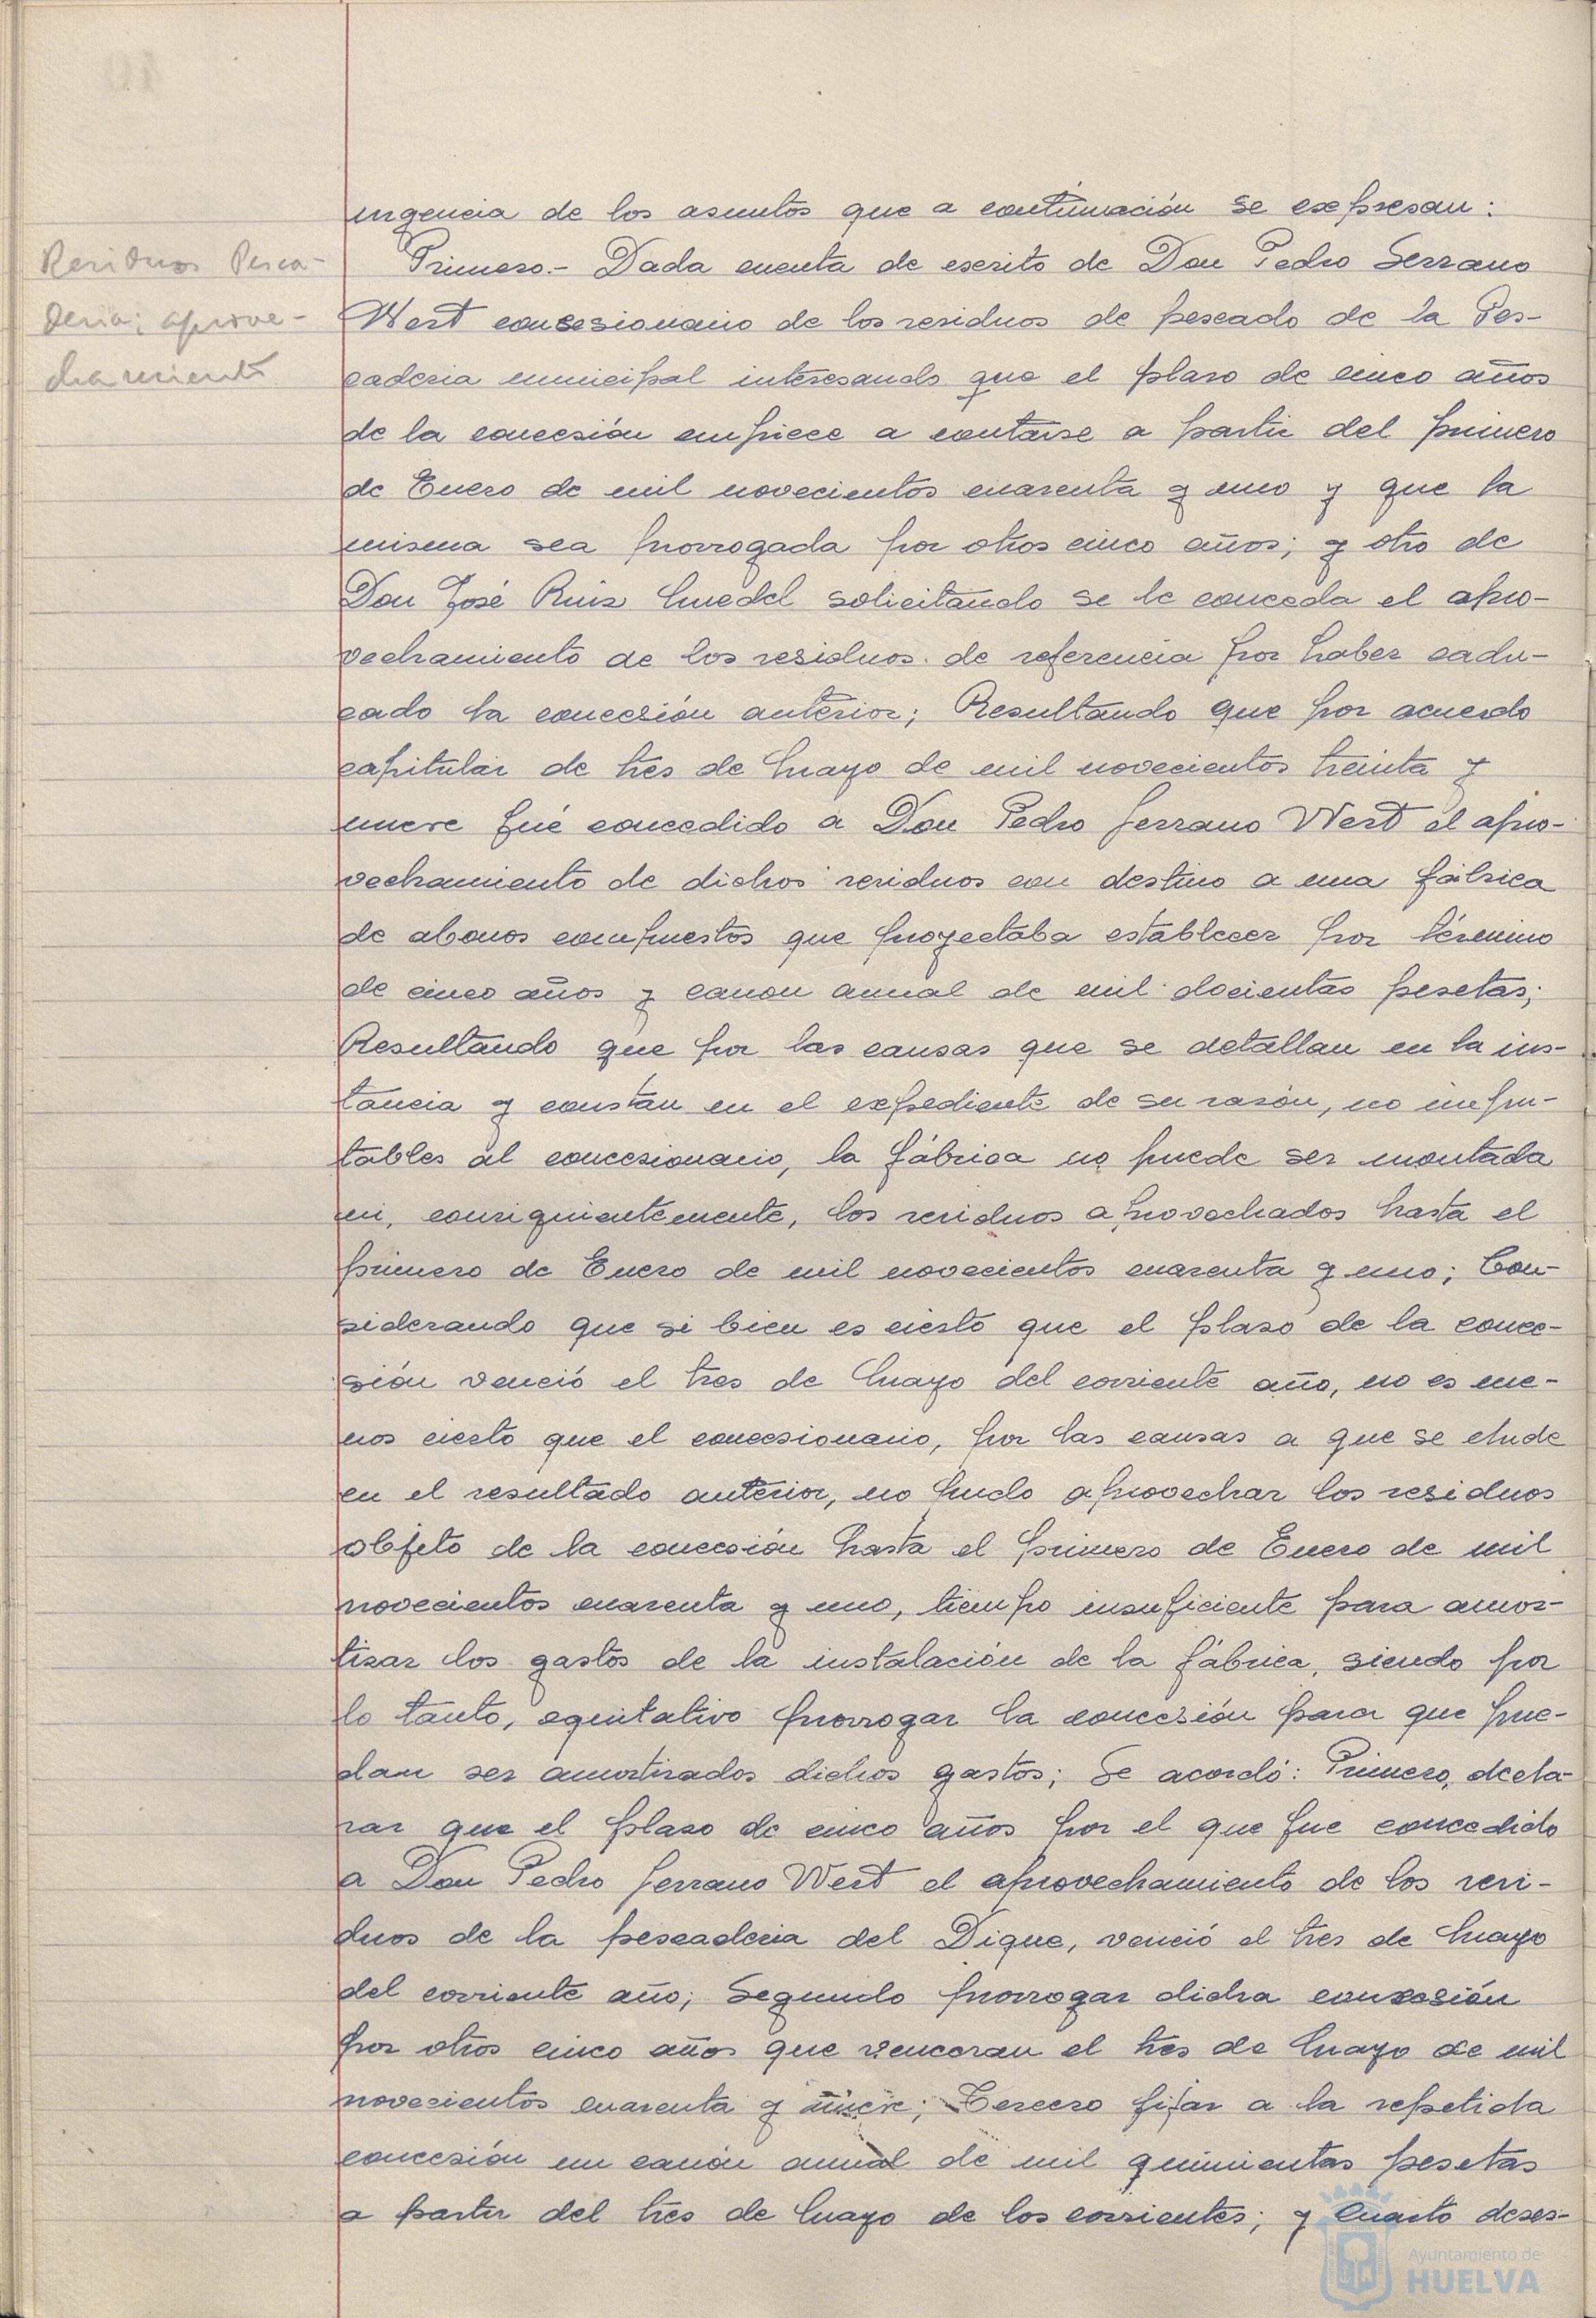 Residuos Pesca-
deria; aprove-
chamiento
urgencia de los asuntos que a continuación se expresan:
Primero.- Dada cuenta de escrito de Don Pedro Serrano
Wert concesionario de los residuos de pescado de la Pes-
caderia municipal interesando que el plazo de cinco años
de la concesión empiece a contarse a partir del primero
de Enero de mil novecientos cuarenta y uno y que la
misma sea prorrogada por otros cinco años; y otro de
Don José Ruiz Muedel solicitando se le conceda el apro-
vechamiento de los residuos de referencia por haber cadu-
cado la concesión anterior; Resultando que por acuerdo
capitular de tres de Mayo de mil novecientos treinta y
nueve fué concedido a Don Pedro Serrano Wert el apro-
vechamiento de dichos residuos con destino a una fábrica
de abonos compuestos que proyectaba establecer por término
de cinco años y canon anual de mil docientas pesetas;
Resultando que por las causas que se detallan en la ins-
tancia y constan en el expediente de su razón, no impu-
tables al concesionario, la fábrica no puede ser montada
ni, consiguientemente, los residuos aprovechados hasta el
primero de Enero de mil novecientos cuarenta y uno; Con-
siderando que si bien es cierto que el plazo de la conce-
sión venció el tres de Mayo del corriente año, no es me-
nos cierto que el concesionario, por las causas a que se elude
en el resultado anterior, no pudo aprovechar los residuos
objeto de la concesión hasta el primero de Enero de mil
novecientos cuarenta y uno, tiempo insuficiente para amor-
tizar los gastos de la instalación de la fábrica, siendo por
lo tanto, equitativo prorrogar la concesión para que pue-
dan ser amortizados dichos gastos; Se acordó: Primero, decla-
rar que el plazo de cinco años por el que fue concedido
a Don Pedro Serrano Wert el aprovechamiento de los resi-
duos de la pescaderia del Dique, venció el tres de Mayo
del corriente año; Segundo prorrogar dicha concesión
por otros cinco años que venceran el tres de Mayo de mil
novecientos cuarenta y nueve; Tercero fijar a la repetida
concesión un canón anual de mil quinientas pesetas
a partir del tres de Mayo de los corrientes; y Cuarto deses-
Ayuntamiento de
HUELVA